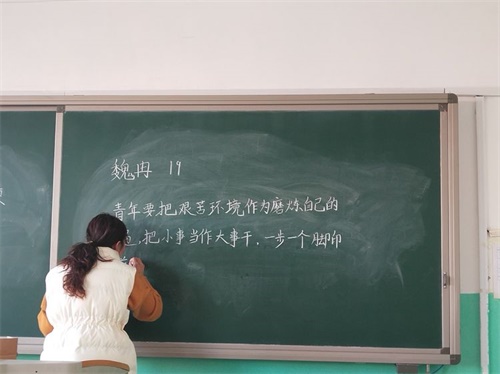 魏冉 19
青年要把艰苦环境作为磨炼自己的
把小事当作大事干,一步一个脚印